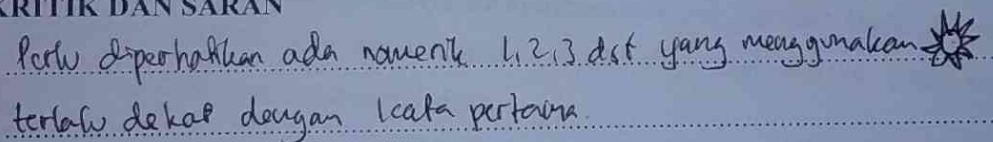 KRITIK DAN SARAN
Perlu diperhatikan ada numerik 1,2,3 dst yang menggunakan
terlalu dekat dengan kata pertama.